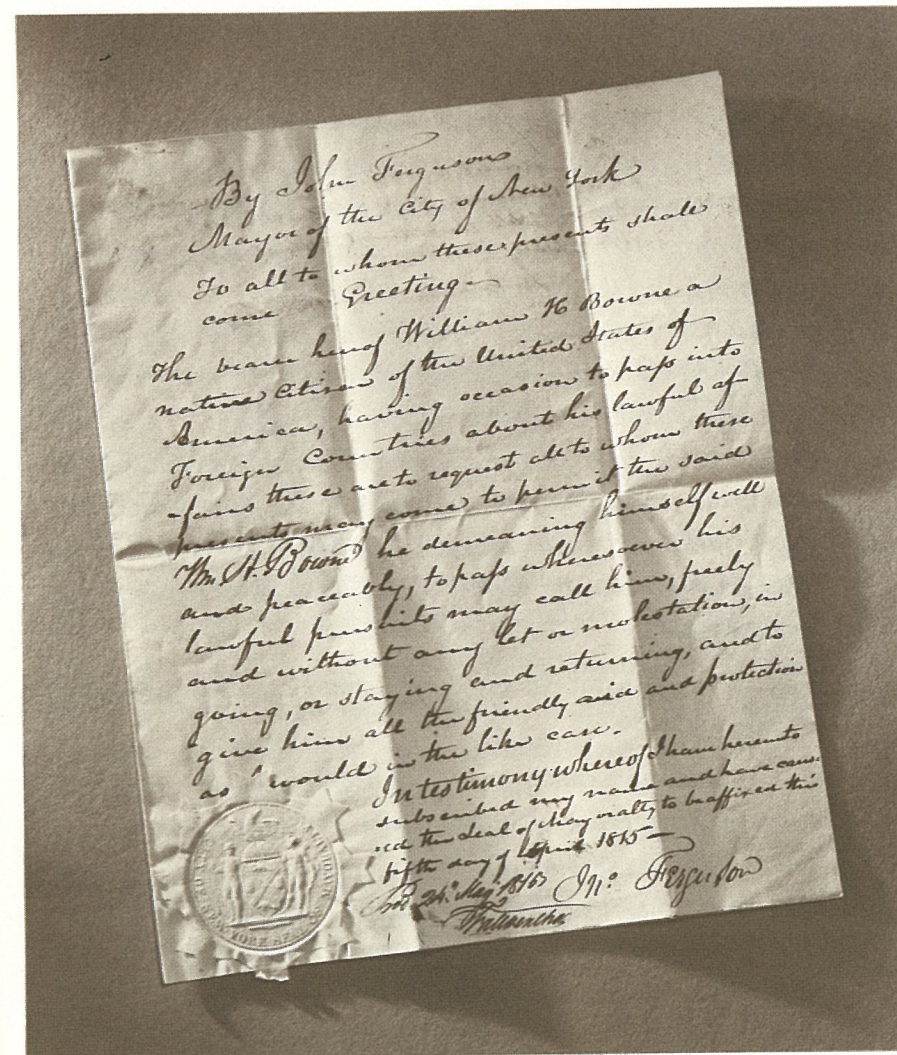 By John Ferguson
Mayor of the City of New York
To all to whom these presents shall
come Greeting
The bearer hereof William H Bowne a
native Citizen of the United States of
America, having occasion to pass into
Foreign Countries about his lawful af
-fairs these are to request all to whom these
presents may come to permit the said
Wm. H. Bowne he demeaning himself well
and peaceably, to pass wheresoever his
lawful pursuits may call him, freely
and without any let or molestation, in
going, or staying and returning, and to
give him all the friendly aid and protection
as I would in the like case.
In testimony whereof I have hereunto
subscribed my name and have caus-
ed the Seal of Mayoralty to be affixed this
fifth day of April 1815
24 May 1816
Jno. Ferguson